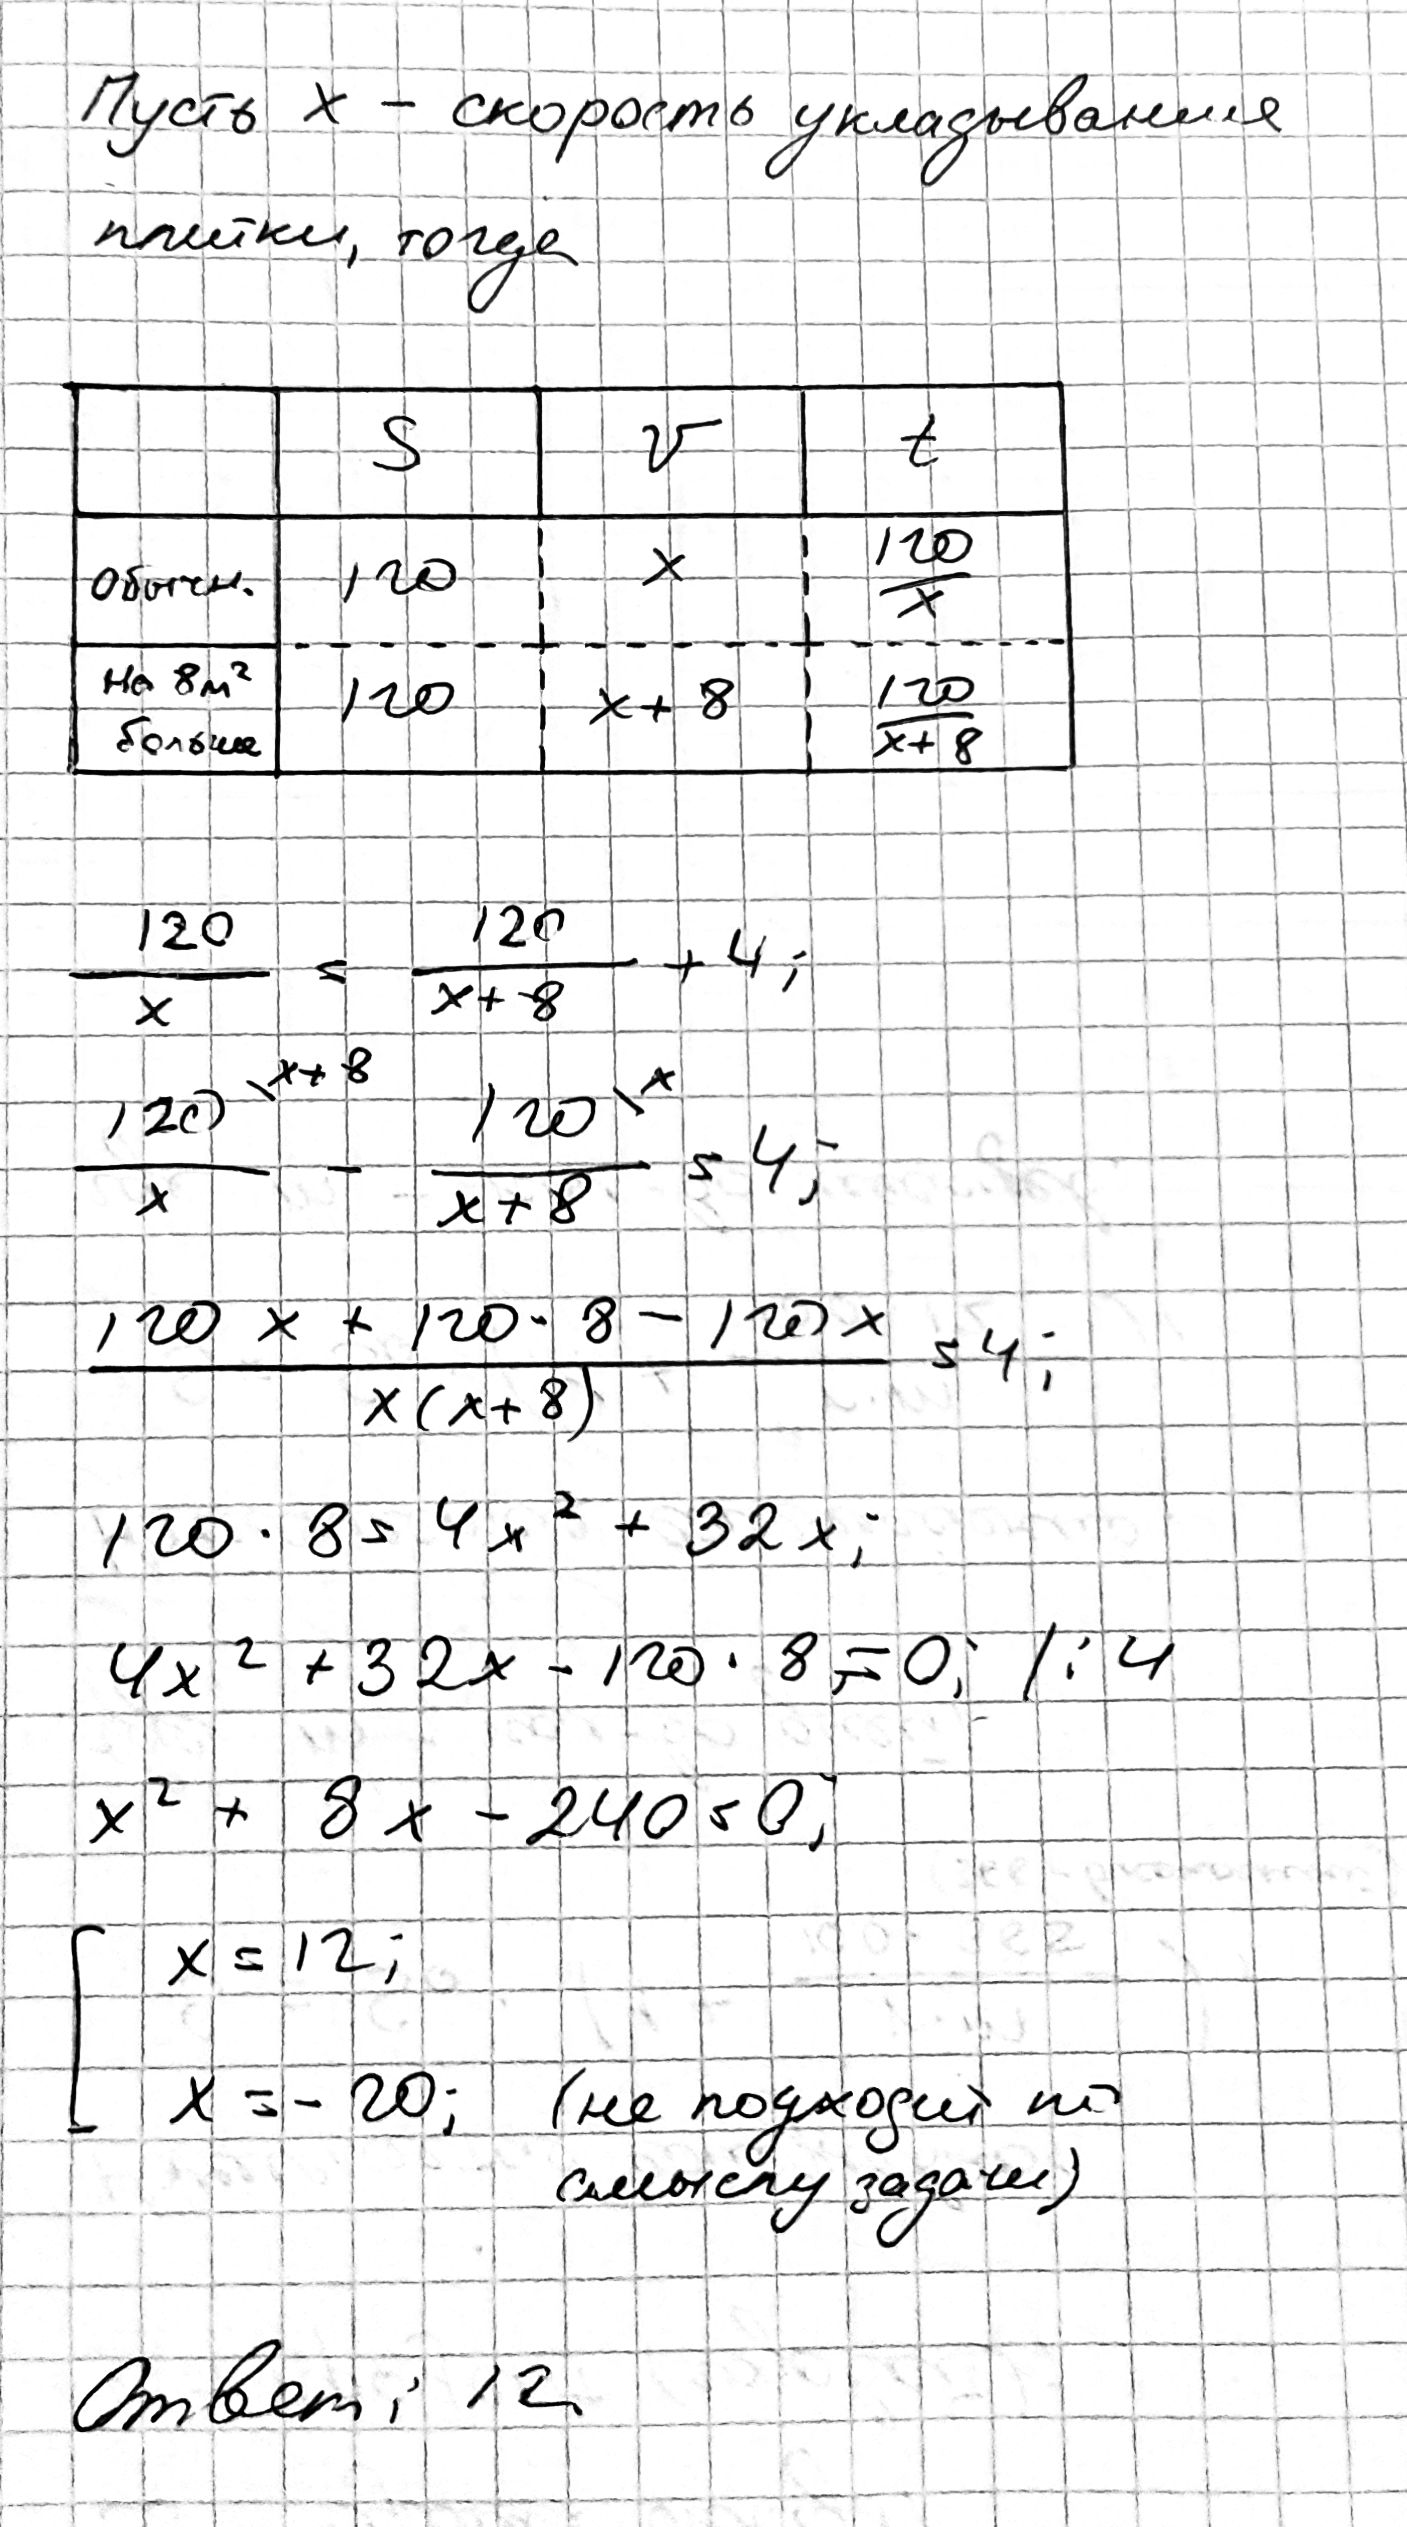 Пусть x – скорость укладывания
плитки, тогда
S v t
Обычн. 120 x 120/x
На 8м² больше 120 x+8 120/(x+8)
120/x = 120/(x+8) + 4;
120\x+8/x - 120\x/(x+8) = 4;
(120x + 120·8 - 120x)/(x(x+8)) = 4;
120·8 = 4x² + 32x;
4x² + 32x - 120·8 = 0; /:4
x² + 8x - 240 = 0;
[ x = 12;
x = -20; (не подходит по
смыслу задачи)
Ответ: 12.